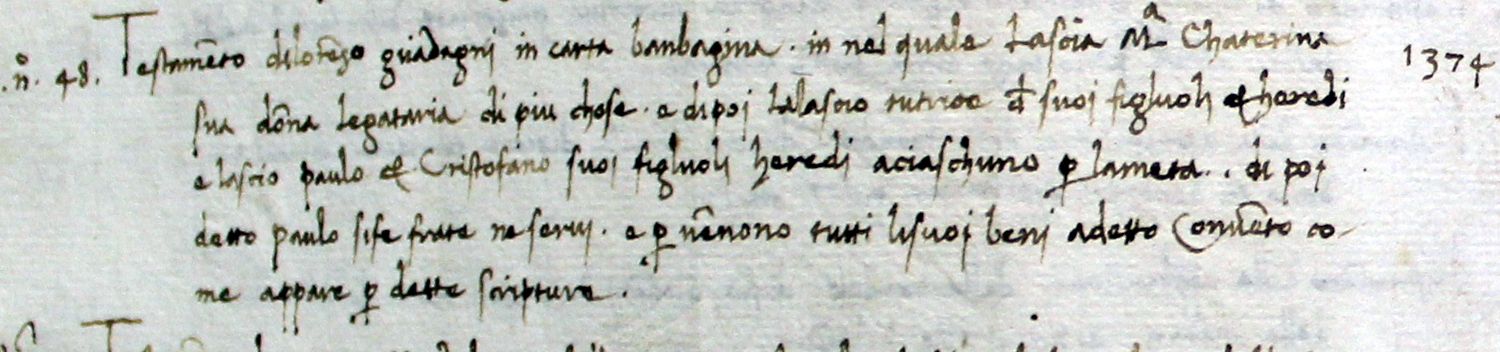 .n.º 48. Testamēto dilorēzo guadagni in carta banbagina . in nel quale Lascia Mª Chaterina 1374
sua dōna legataria di piu chose . e dipoi lalascio tutrice đ suoi figluoli et heredi
e lascio paulo et Cristofano suoi figluoli heredi aciaschuno ꝑ lameta . . di poi
detto paulo sife frate ne servi . e ꝑ vēnono tutti lisuoi beni adetto Convēto co-
me appare ꝑ dette scripture .